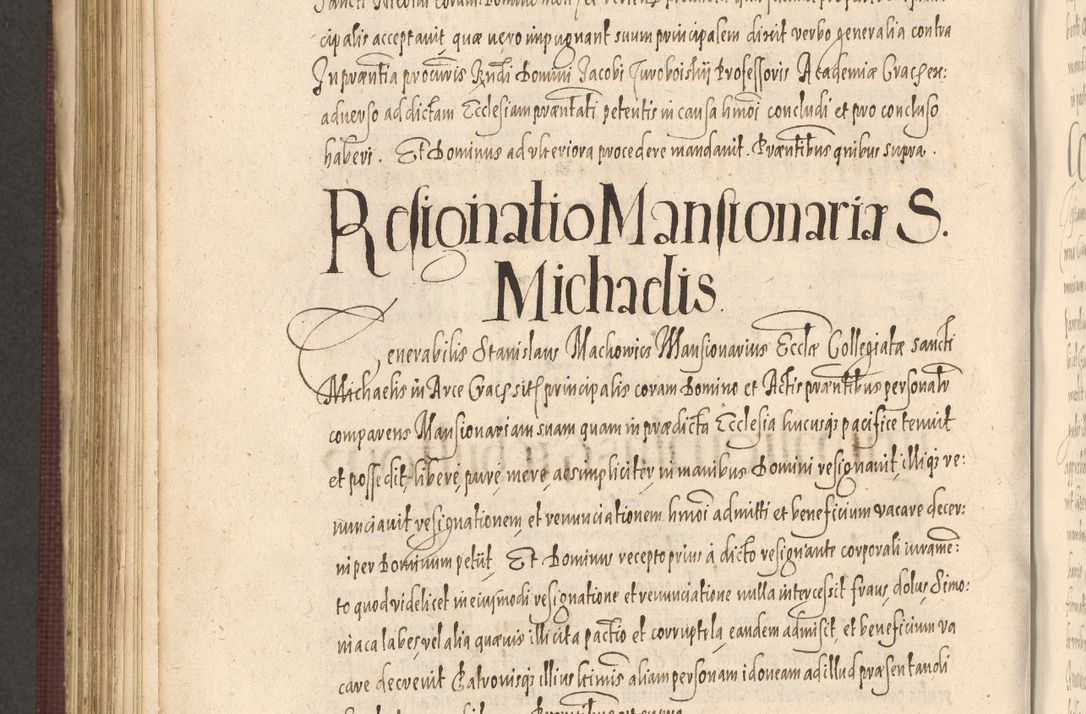 cipalis acceptavit, quæ vero impugnant suum principalem dixit verbo generalia contra
In præntia procūris Rndi Domini Jacobi Professoris Academiæ Cracȟen:
adverso ad dictam Ecclesiam præntati petentis in causa hmōi concludi et pro concluso
haberi. Et Dominus ad ulteriora procedere mandavit. Præntibus quibus supra.
Resignatio Mansionariæ S.
Michaelis.
Venerabilis Stanislaus Machowicz Mansionarius Ecclæ Collegiatæ sancti
Michaelis in Arce Crac: principalis coram Domino et Actis præntibus personalr
comparens Mansionariam suam quam in prædicta Ecclesia hucusq; pacifice tenuit
et possedit, libere, pure, mere, ac simpliciter, in manibus Domini resignavit, illiq; re:
nunciavit resignationem, et renunciationem hmōi admitti et beneficium vacare decer:
ni per Dominum petiit, Et Dominus recepto prius á dicto resignante corporali iurame:
to quod videlicet in eiusmodi resignatione et renunciatione nulla intercessit fraus, dolus, Simo:
niaca labes, vel alia quævis illicita pactio et corruptela, eandem admisit, et beneficium va
care decrevit Patronisq; illius ltimis aliam personam idoneam ad illud præsentandi